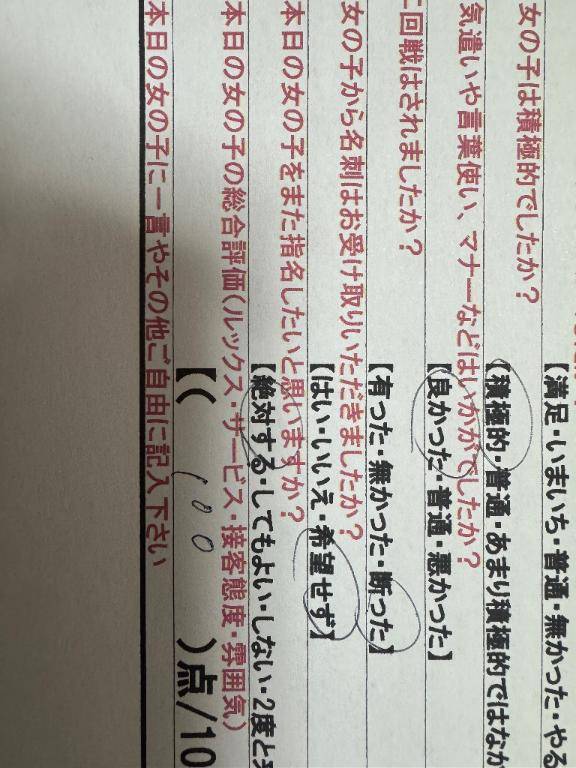 【満足・いまいち・普通・無かった・やる
女の子は積極的でしたか?
【積極的・普通・あまり積極的ではなか
気遣いや言葉使い、マナーなどはいかがでしたか?
【良かった・普通・悪かった】
二回戦はされましたか?
【有った・無かった・断った】
女の子から名刺はお受け取りいただきましたか?
【はい・いいえ・希望せず】
本日の女の子をまた指名したいと思いますか?
【絶対する・してもよい・しない・2度と
本日の女の子の総合評価(ルックス・サービス・接客態度・雰囲気)
【( 100 )点/10
本日の女の子に一言やその他ご自由に記入下さい